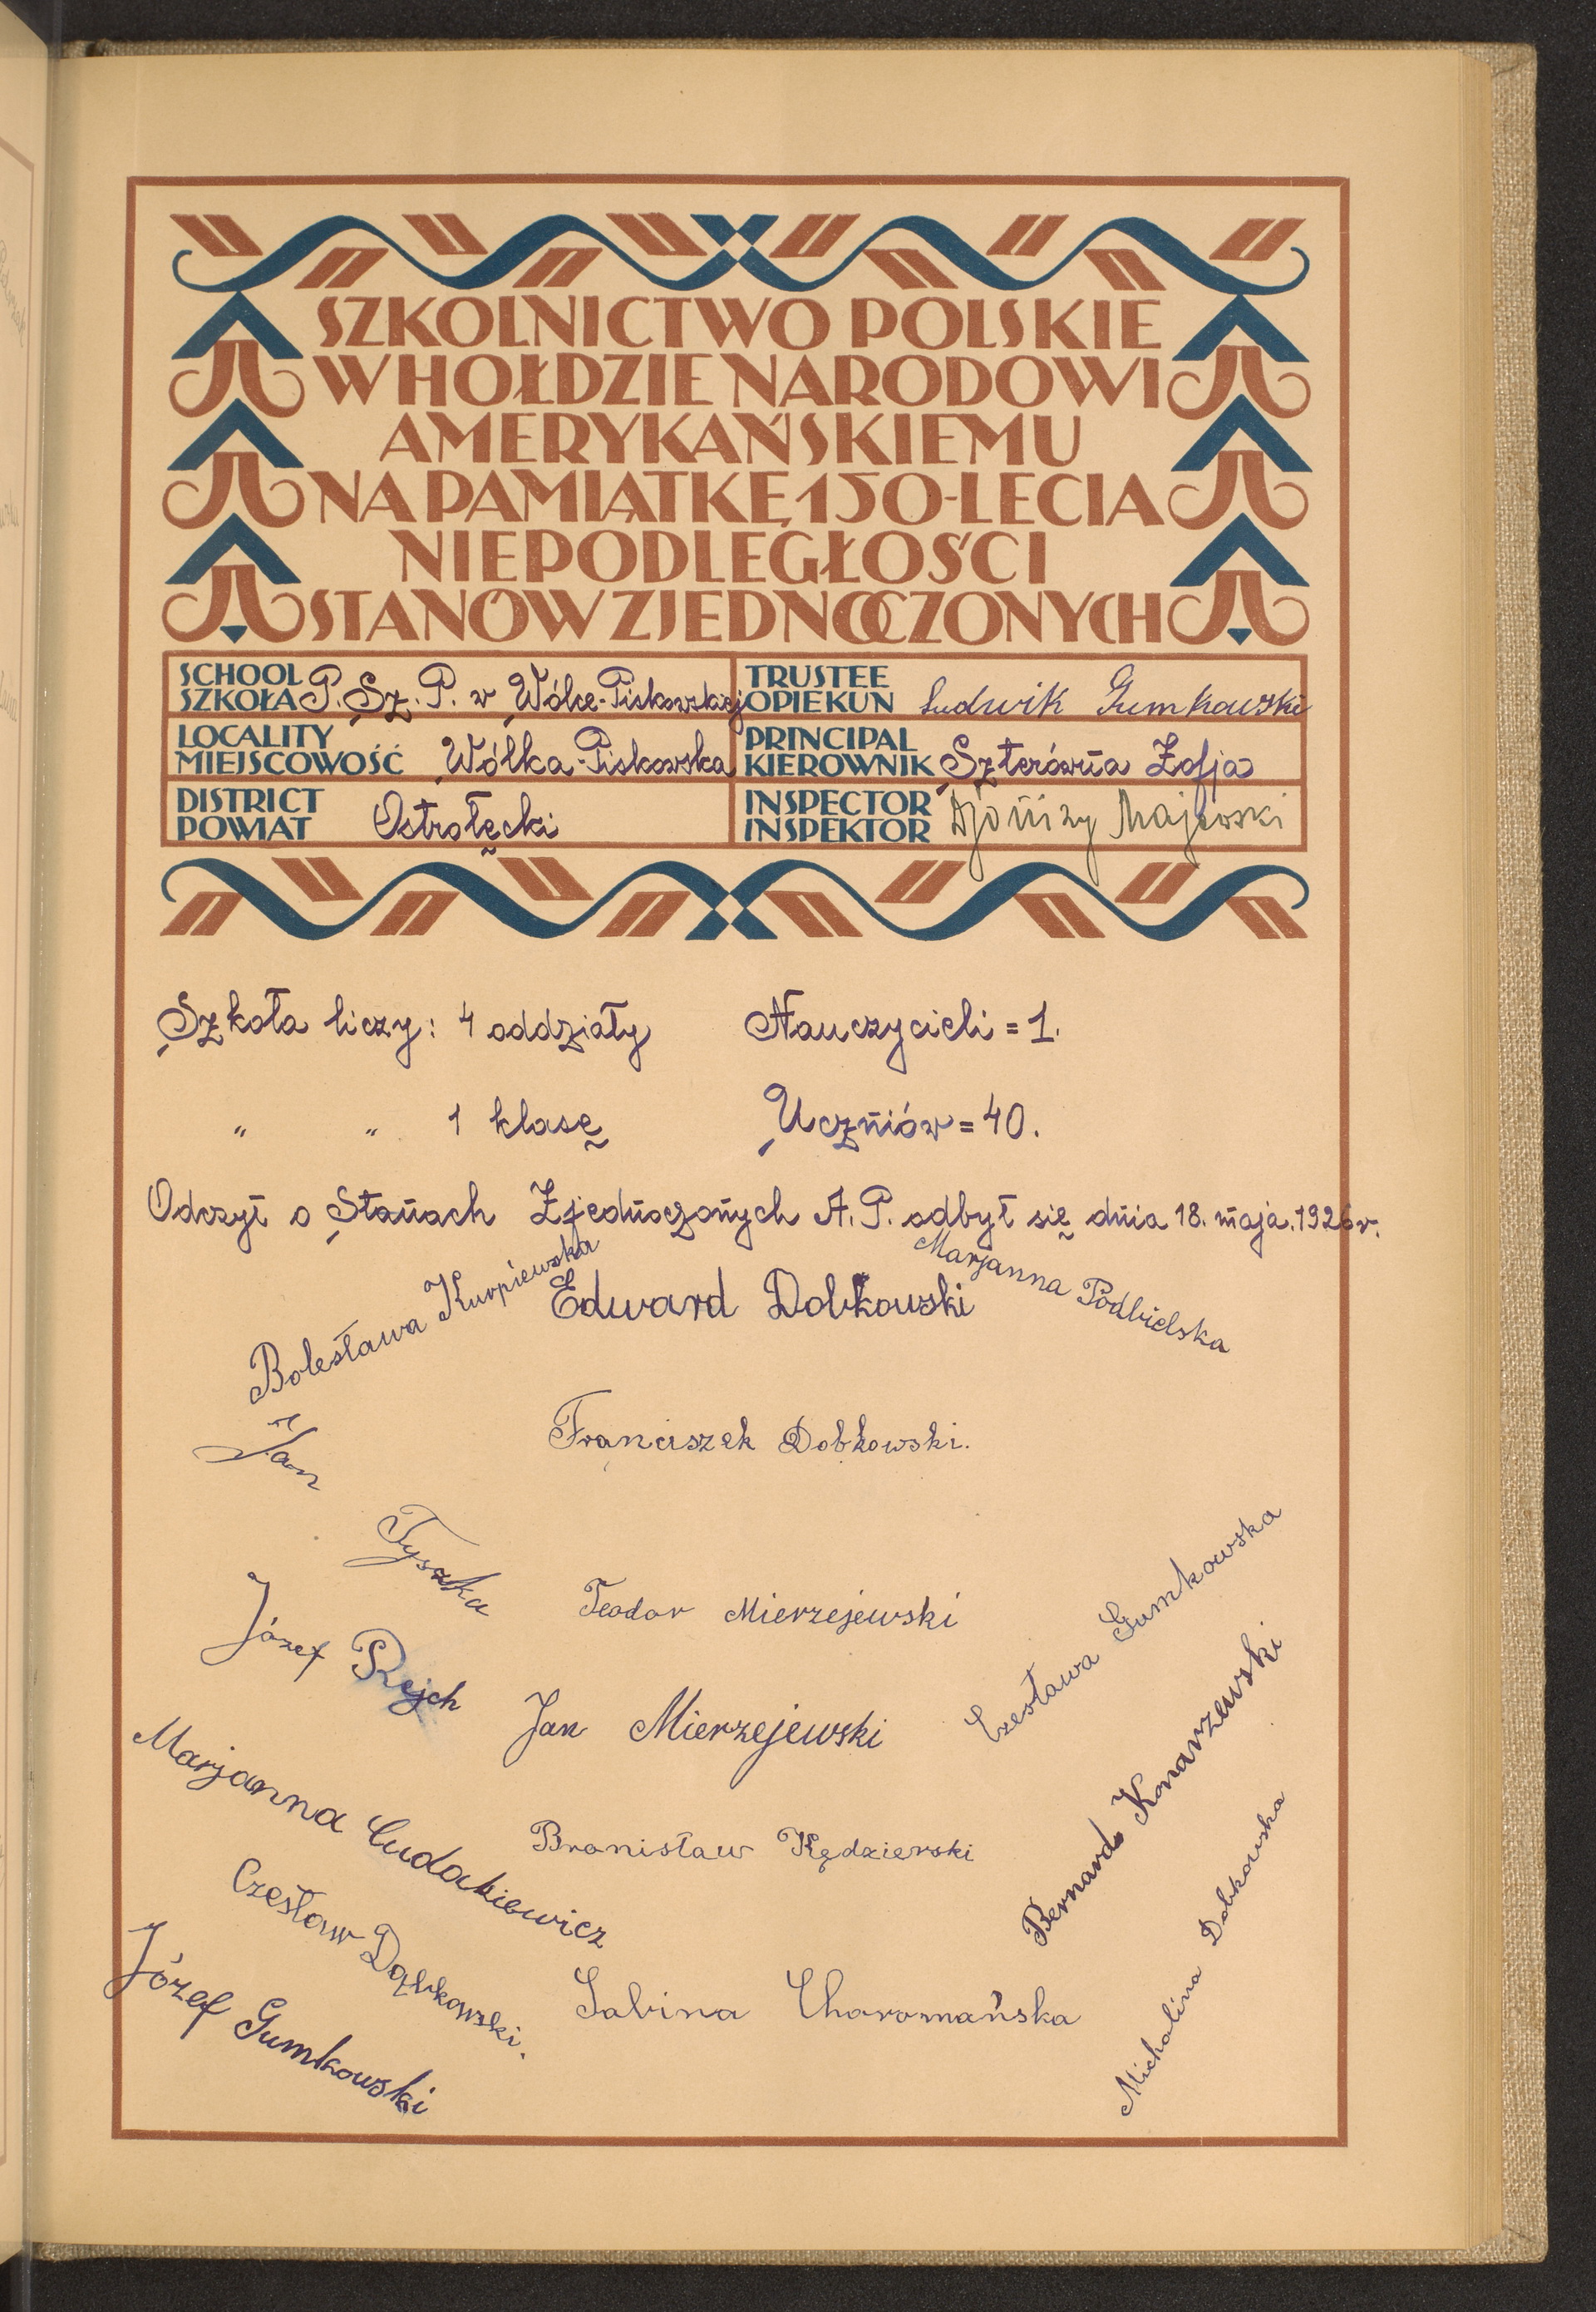 SZKOLNICTWO POLSKIE
W HOŁDZIE NARODOWI
AMERYKAŃSKIEMU
NA PAMIĄTKĘ 150-LECIA
NIEPODLEGŁOŚCI
STANÓW ZJEDNOCZONYCH
SCHOOL
SZKOŁA P. Sz. P. w Wólce-Piskowskiej
TRUSTEE
OPIEKUN Ludwik Gumkowski
LOCALITY
MIEJSCOWOŚĆ Wólka-Piskowska
PRINCIPAL
KIEROWNIK Szterówna Zofja
DISTRICT
POWIAT Ostrołęcki
INSPECTOR
INSPEKTOR Djonizy Majewski
Szkoła liczy: 4 oddziały Nauczycieli = 1.
„ „ 1 klasę Uczniów = 40.
Odczyt o Stanach Zjednoczonych A. P. odbył się dnia 18. maja. 1926 r.
Bolesława Kurpiewska
Edward Dobkowski
Marjanna Podbielska
Jan Tyszka
Franciszek Dobkowski.
Teodor Mierzejewski
Czesława Gumkowska
Józef Rejch
Jan Mierzejewski
Bernard Konarzewski
Marjanna Cudakiewicz
Bronisław Kędzierski
Michalina Dobkowska
Czesław Dąbkowski.
Sabina Choromańska
Józef Gumkowski